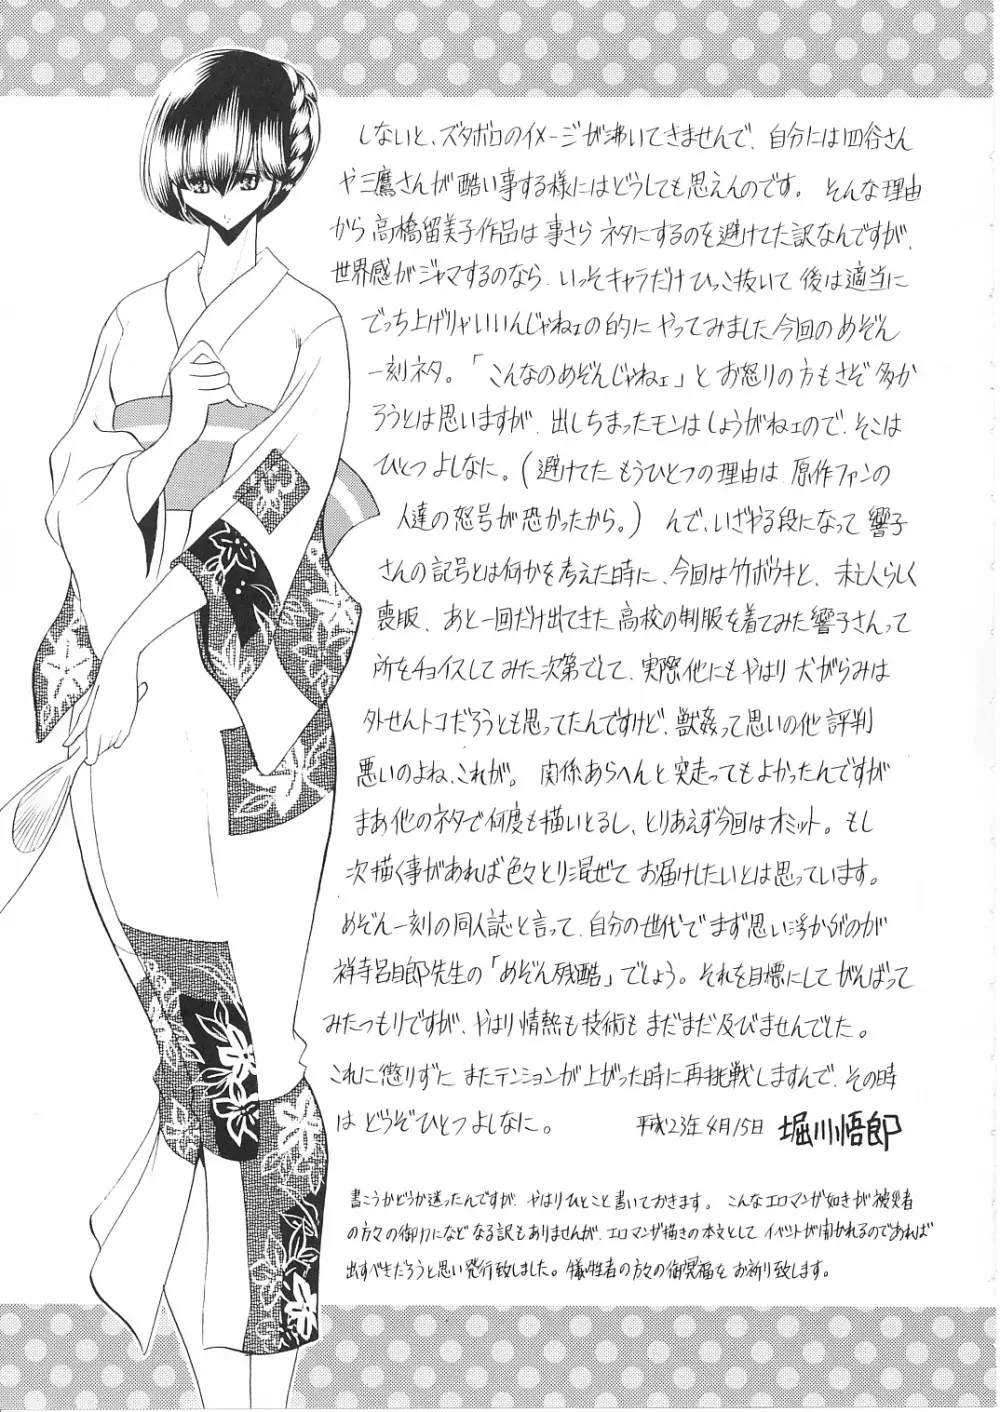 しないと、ズタボロのイメージが沸いてきませんで、自分には四谷さん
や三鷹さんが酷い事する様にはどうしても思えんのです。そんな理由
から高橋留美子作品は事さらネタにするのを避けてた訳なんですが、
世界感がジャマするのなら、いっそキャラだけひっこ抜いて後は適当に
でっち上げりゃいいんじゃねェの的にやってみました今回のめぞん
一刻ネタ。「こんなのめぞんじゃねェ」とお怒りの方もさぞ多か
ろうとは思いますが、出しちまったモンはしょうがねェので、そこは
ひとつよしなに。(避けてたもうひとつの理由は原作ファンの
人達の怒号が恐かったから。) んで、いざやる段になって響子
さんの記号とは何かを考えた時に、今回は竹ボウキと、未亡人らしく
喪服、あと一回だけ出てきた高校の制服を着てみた響子さんって
所をチョイスしてみた次第でして、実際他にもやはり犬がらみは
外せんトコだろうとも思ってたんですけど、獣姦って思いの他評判
悪いのよね、これが。関係あらへんと突走ってもよかったんですが
まあ他のネタで何度も描いとるし、とりあえず今回はオミット。もし
次描く事があれば色々とり混ぜてお届けしたいとは思っています。
めぞん一刻の同人誌と言って、自分の世代でまず思い浮かぶのが
祥寺呂自郎先生の「めぞん残酷」でしょう。それを目標にしてがんばって
みたつもりですが、やはり情熱も技術もまだまだ及びませんでした。
これに懲りずにまたテンションが上がった時に再挑戦しますんで、その時
はどうぞひとつよしなに。 平成23年4月15日 堀川悟郎
書こうかどうか迷ったんですが、やはりひとこと書いておきます。こんなエロマンガ如きが被災者
の方々の御力になどなる訳もありませんが、エロマンガ描きの本文としてイベントが開かれるのであれば
出すべきだろうと思い発行致しました。犠牲者の方々の御冥福をお祈り致します。